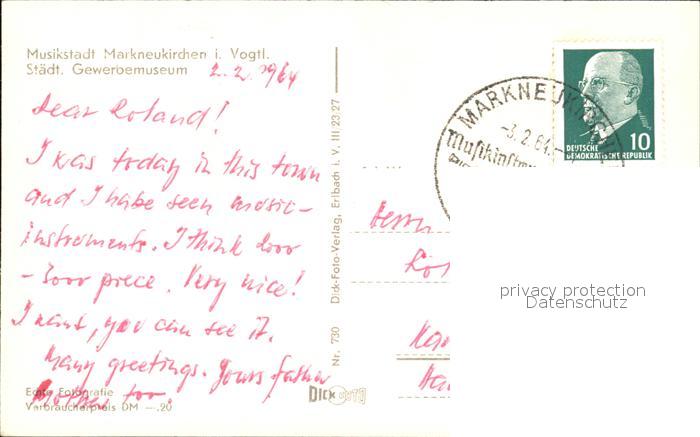 Musikstadt Markneukirchen i. Vogtl.
Städt. Gewerbemuseum
2.2.1964
Dear Roland!
I was today in this town
and I habe seen music-
instruments. I think 2000
- 3000 piece. Very nice!
I want, you can see it.
Many greetings. Yours father
Mother too.
Echte Fotografie
Verbraucherpreis DM —.20
Nr. 730 Dick-Foto-Verlag, Erlbach i. V. III 23 27
DICK FOTO
MARKNEUKIRCH
-3.2.64.-
Musikinstru
10
DEUTSCHE
DEMOKRATISCHE REPUBLIK
Herrn
privacy protection
Datenschutz